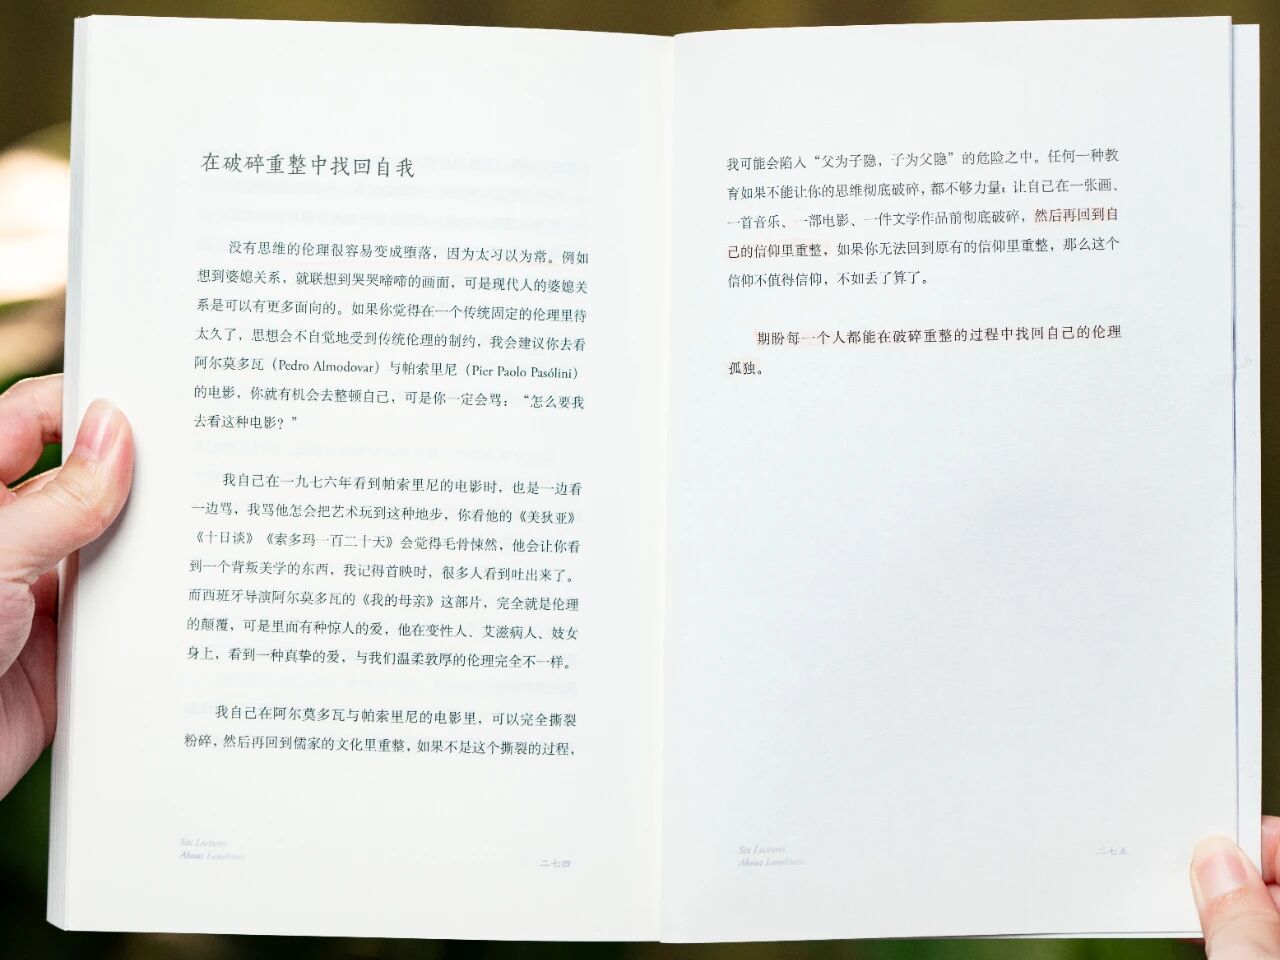 在破碎重整中找回自我
没有思维的伦理很容易变成堕落，因为太习以为常。例如
想到婆媳关系，就联想到哭哭啼啼的画面，可是现代人的婆媳关
系是可以有更多面向的。如果你觉得在一个传统固定的伦理里待
太久了，思想会不自觉地受到传统伦理的制约，我会建议你去看
阿尔莫多瓦（Pedro Almodovar）与帕索里尼（Pier Paolo Pasólini）
的电影，你就有机会去整顿自己，可是你一定会骂：“怎么要我
去看这种电影？”
我自己在一九七六年看到帕索里尼的电影时，也是一边看
一边骂，我骂他怎会把艺术玩到这种地步，你看他的《美狄亚》
《十日谈》《索多玛一百二十天》会觉得毛骨悚然，他会让你看
到一个背叛美学的东西，我记得首映时，很多人看到吐出来了。
而西班牙导演阿尔莫多瓦的《我的母亲》这部片，完全就是伦理
的颠覆，可是里面有种惊人的爱，他在变性人、艾滋病人、妓女
身上，看到一种真挚的爱，与我们温柔敦厚的伦理完全不一样。
我自己在阿尔莫多瓦与帕索里尼的电影里，可以完全撕裂
粉碎，然后再回到儒家的文化里重整，如果不是这个撕裂的过程，
Six Lectures
About Loneliness
二七四
我可能会陷入“父为子隐，子为父隐”的危险之中。任何一种教
育如果不能让你的思维彻底破碎，都不够力量；让自己在一张画、
一首音乐、一部电影、一件文学作品前彻底破碎，然后再回到自
己的信仰里重整，如果你无法回到原有的信仰里重整，那么这个
信仰不值得信仰，不如丢了算了。
期盼每一个人都能在破碎重整的过程中找回自己的伦理
孤独。
Six Lectures
About Loneliness
二七五